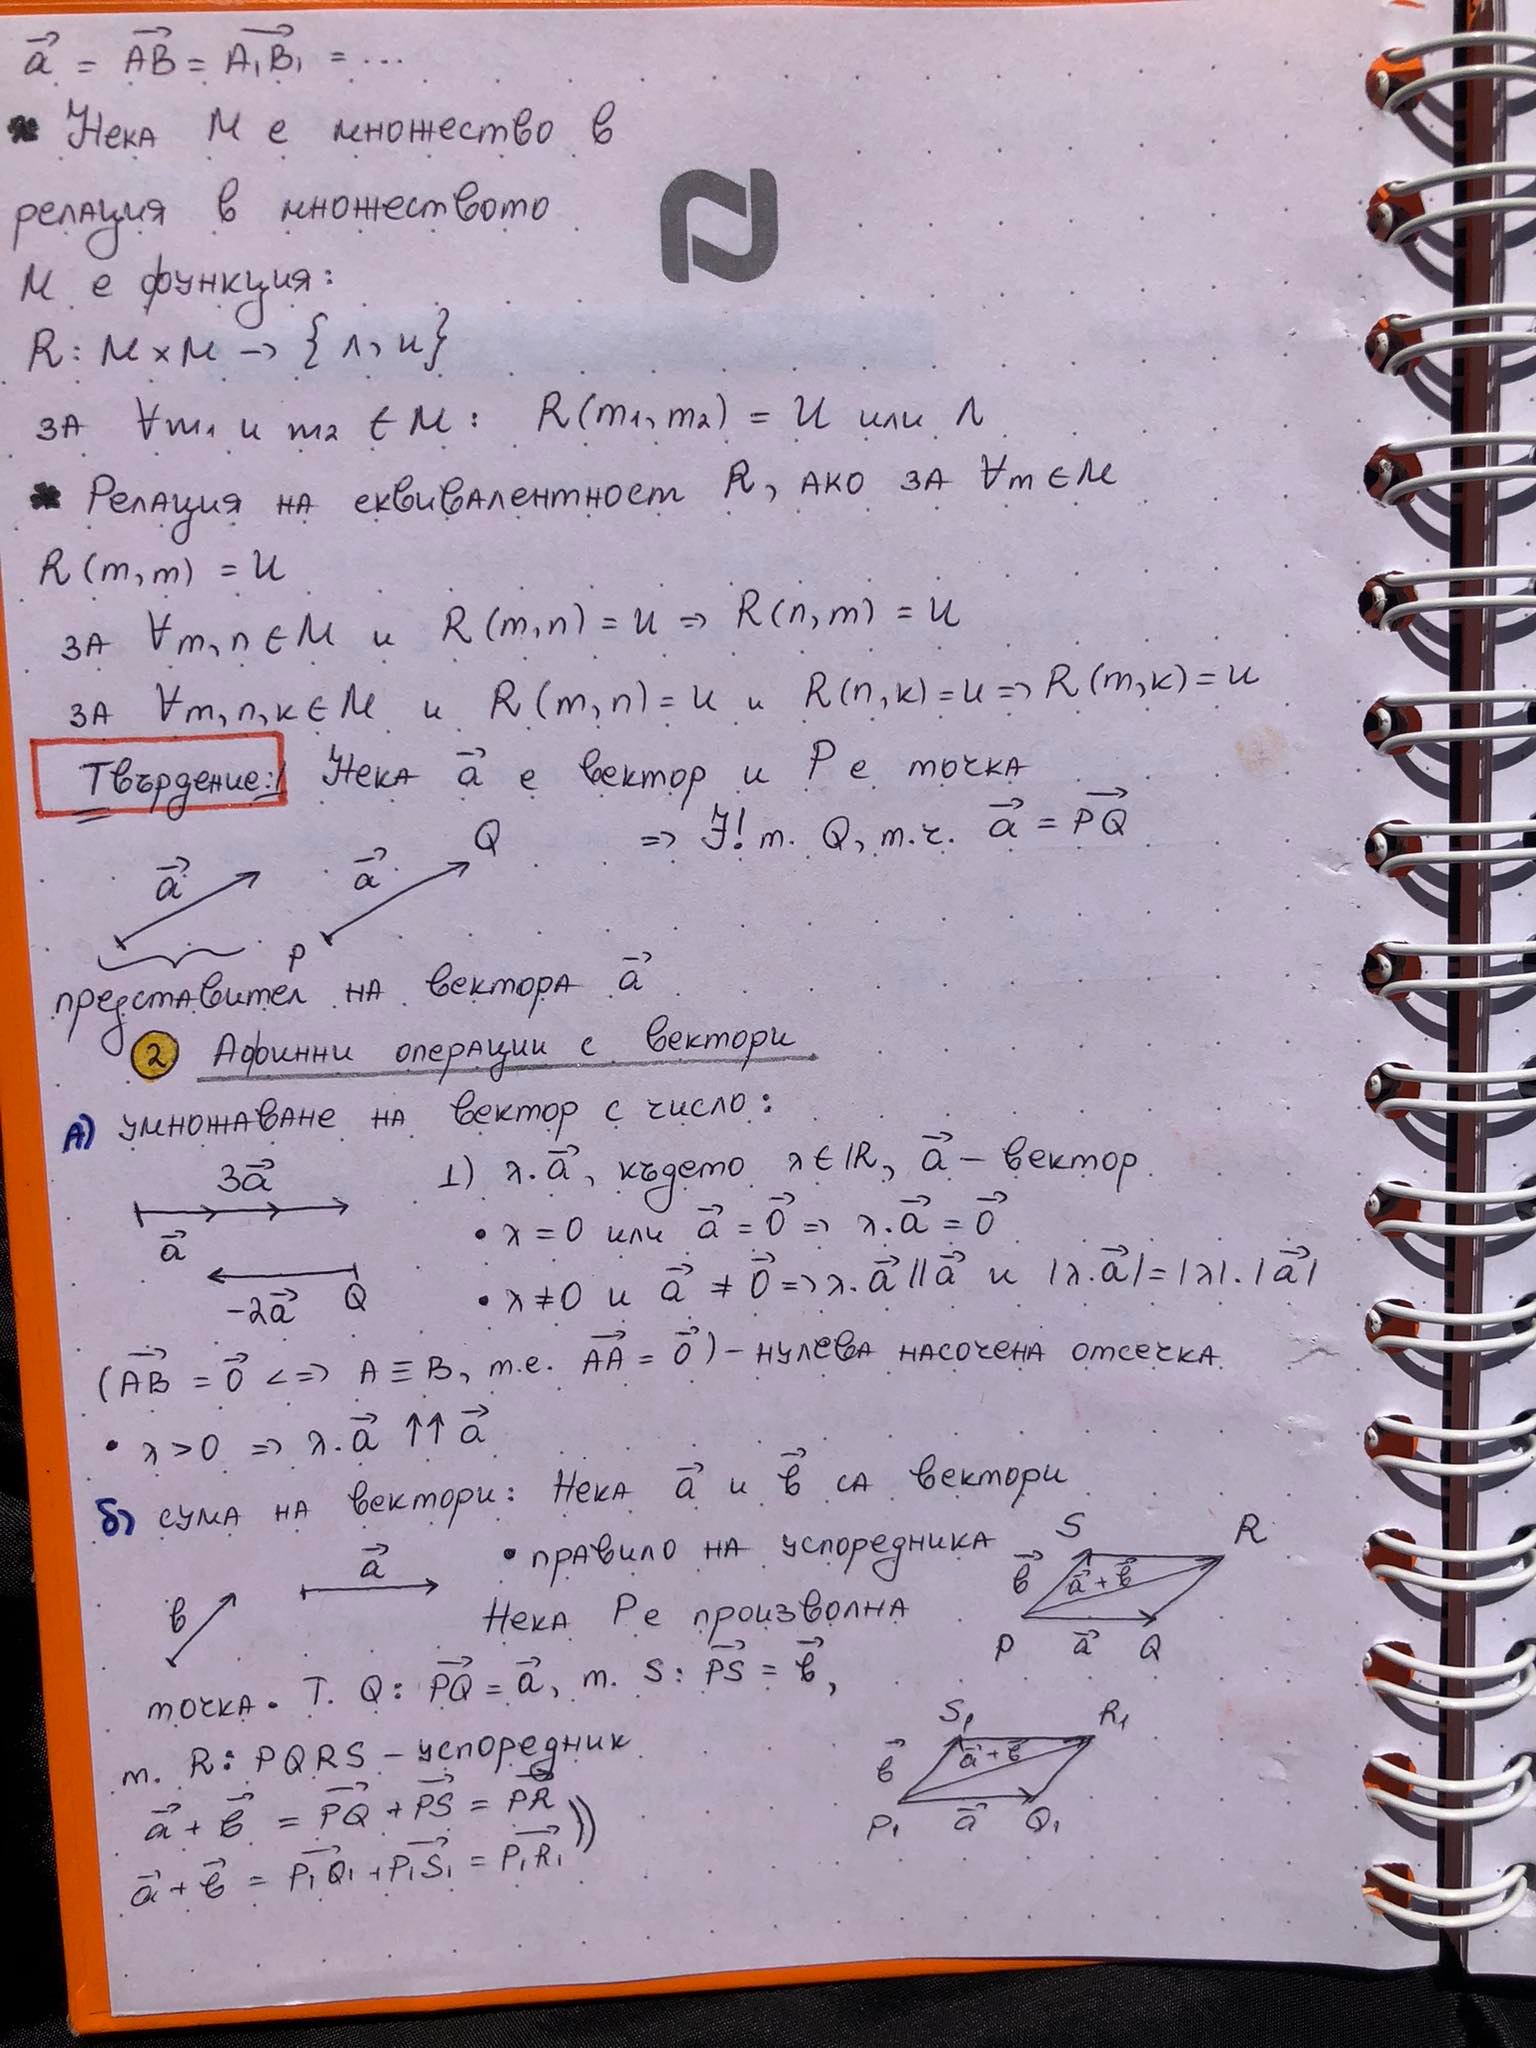 a⃗ = AB⃗ = A₁B₁⃗ = ...
* Нека M е множество в
релация в множеството
M е функция:
R: M x M → {л, и}
за ∀m₁ и m₂ ∈ M: R(m₁, m₂) = И или Л
* Релация на еквивалентност R, ако за ∀m ∈ M
R(m, m) = И
за ∀m, n ∈ M и R(m, n) = И => R(n, m) = И
за ∀m, n, к ∈ M и R(m, n) = И и R(n, к) = И => R(m, к) = И
Твърдение:1 Нека a⃗ е вектор и P е точка
=> ∃! т. Q, т.ч. a⃗ = PQ⃗
a⃗ a⃗ Q
P
представител на вектора a⃗
2 Афинни операции с вектори
а) умножаване на вектор с число:
3a⃗ 1) λ.a⃗, където λ ∈ ℝ, a⃗ - вектор
a⃗ • λ = 0 или a⃗ = 0⃗ => λ.a⃗ = 0⃗
-2a⃗ Q • λ ≠ 0 и a⃗ ≠ 0⃗ => λ.a⃗ || a⃗ и |λ.a⃗| = |λ|.|a⃗|
(AB⃗ = 0⃗ <=> A ≡ B, т.е. AA⃗ = 0⃗) - нулева насочена отсечка
• λ > 0 => λ.a⃗ ↑↑ a⃗
б) сума на вектори: Нека a⃗ и в⃗ са вектори
a⃗ • правило на успоредника S R
в Нека P е произволна в⃗ a⃗ + в⃗
P a⃗ Q
точка. Т. Q: PQ⃗ = a⃗, т. S: PS⃗ = в⃗,
S₁ R₁
т. R: PQRS - успоредник в⃗ a⃗ + в⃗
a⃗ + в⃗ = PQ⃗ + PS⃗ = PR⃗ P₁ a⃗ Q₁
a⃗ + в⃗ = P₁Q₁⃗ + P₁S₁⃗ = P₁R₁⃗ ))